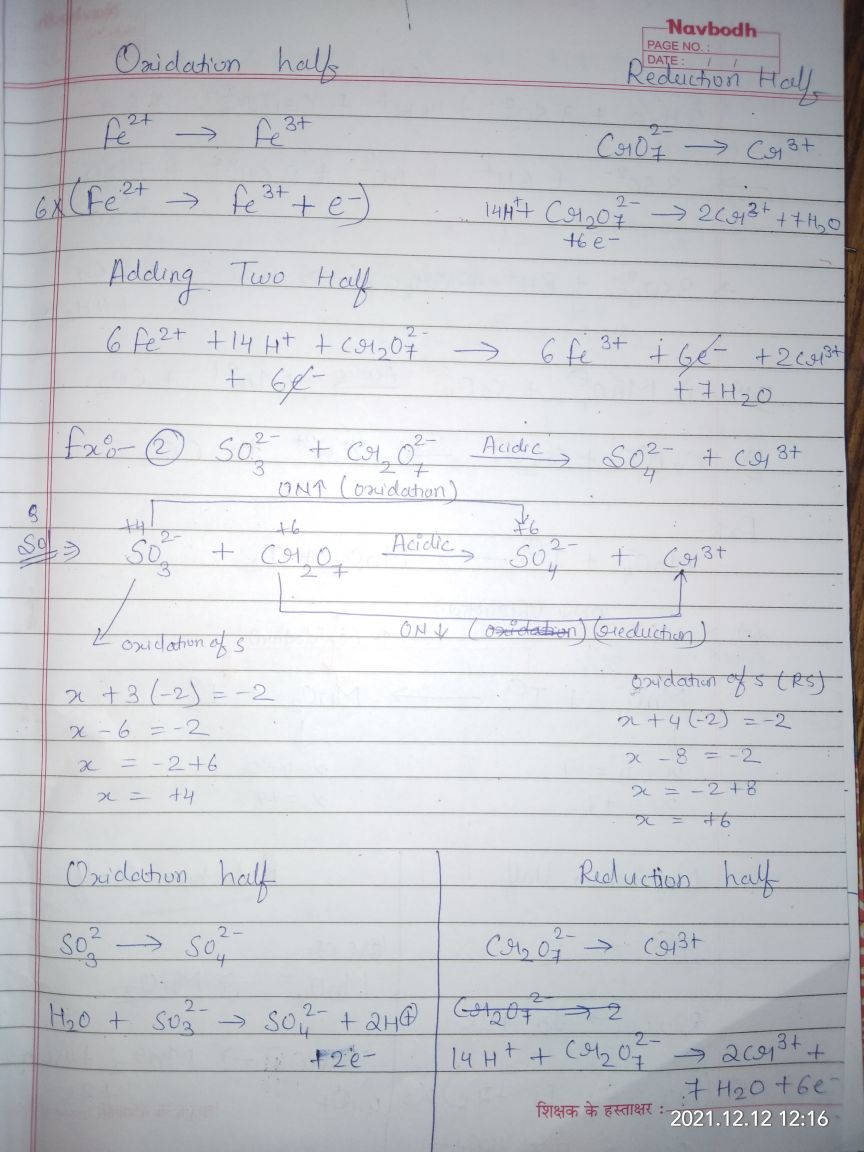 Navbodh
PAGE NO. :
DATE : / /
Oxidation half
Reduction Half
Fe²⁺ → Fe³⁺
CrO₇²⁻ → Cr³⁺
6x(Fe²⁺ → Fe³⁺ + e⁻)
14H⁺ + Cr₂O₇²⁻ → 2Cr³⁺ + 7H₂O
+6e⁻
Adding Two Half
6 Fe²⁺ + 14 H⁺ + Cr₂O₇²⁻ → 6 Fe³⁺ + 6e⁻ + 2Cr³⁺
+ 6e⁻ + 7H₂O
Ex:- ② SO₃²⁻ + Cr₂O₇²⁻ Acidic → SO₄²⁻ + Cr³⁺
ON↑ (oxidation)
+4 +6 +6
Sol ⇒ SO₃²⁻ + Cr₂O₇ Acidic → SO₄²⁻ + Cr³⁺
ON↓ (oxidation) (reduction)
oxidation of S
x + 3(-2) = -2
x - 6 = -2
x = -2+6
x = +4
oxidation of S (RS)
x + 4(-2) = -2
x - 8 = -2
x = -2+8
x = +6
Oxidation half
SO₃² → SO₄²⁻
H₂O + SO₃²⁻ → SO₄²⁻ + 2H⊕
+2e⁻
Reduction half
Cr₂O₇²⁻ → Cr³⁺
Cr₂O₇²⁻ → 2
14 H⁺ + Cr₂O₇²⁻ → 2Cr³⁺ +
7 H₂O + 6e⁻
शिक्षक के हस्ताक्षर :
2021.12.12 12:16